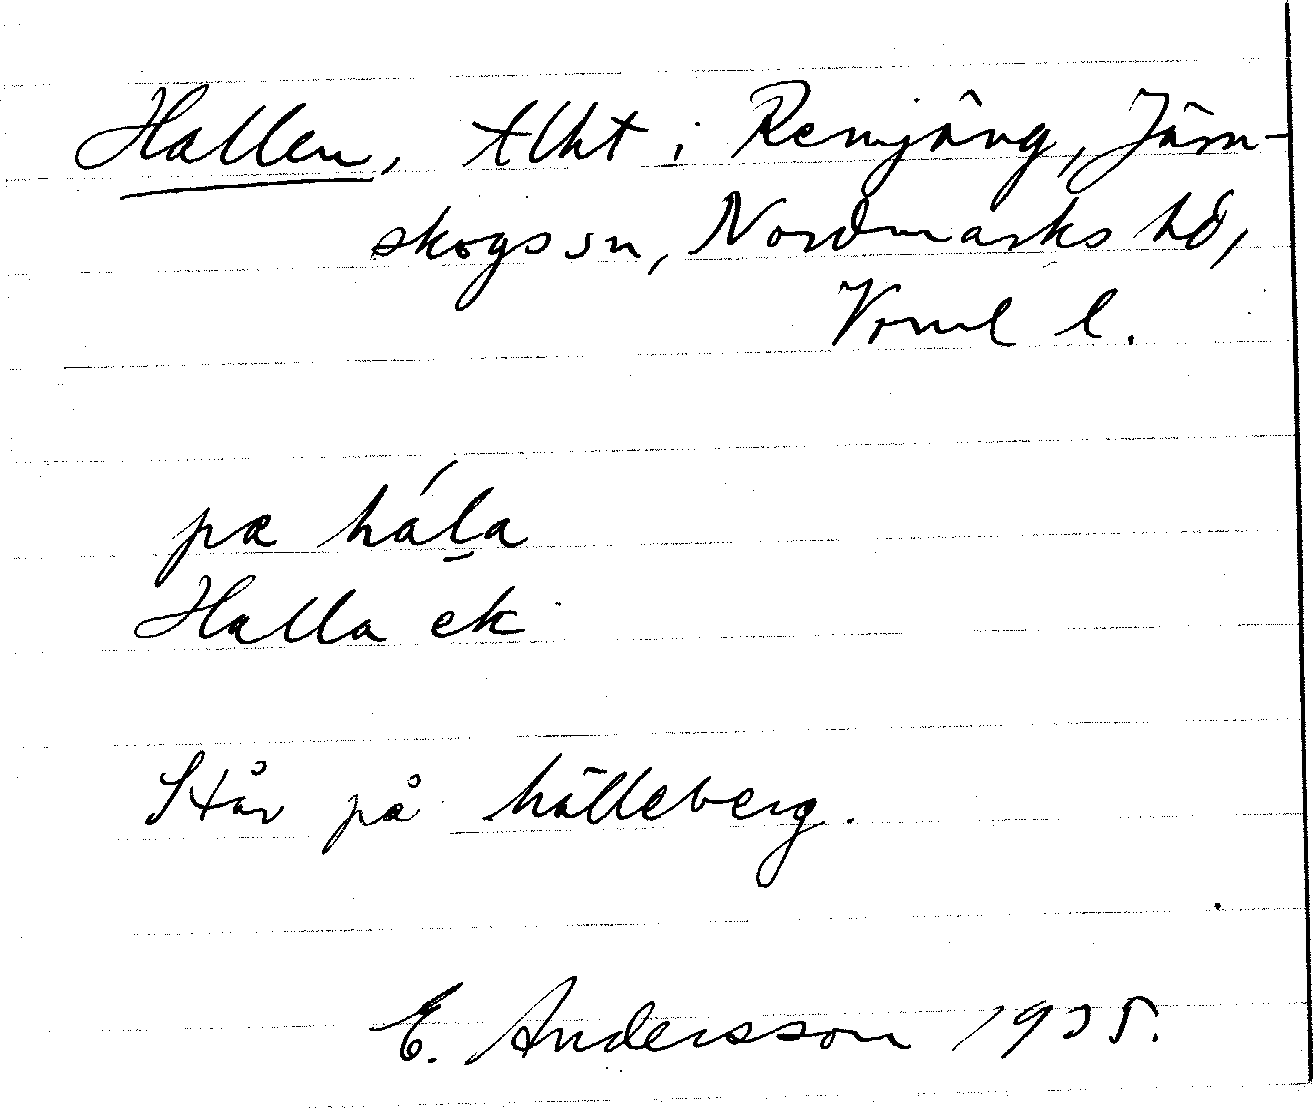 Hallen, tlht i Remjäng, Järn-
skogs sn, Nordmarks hd,
Vrml l.
pæ háḻa
Halla ek
Står på hälleberg.
E. Andersson 1935.